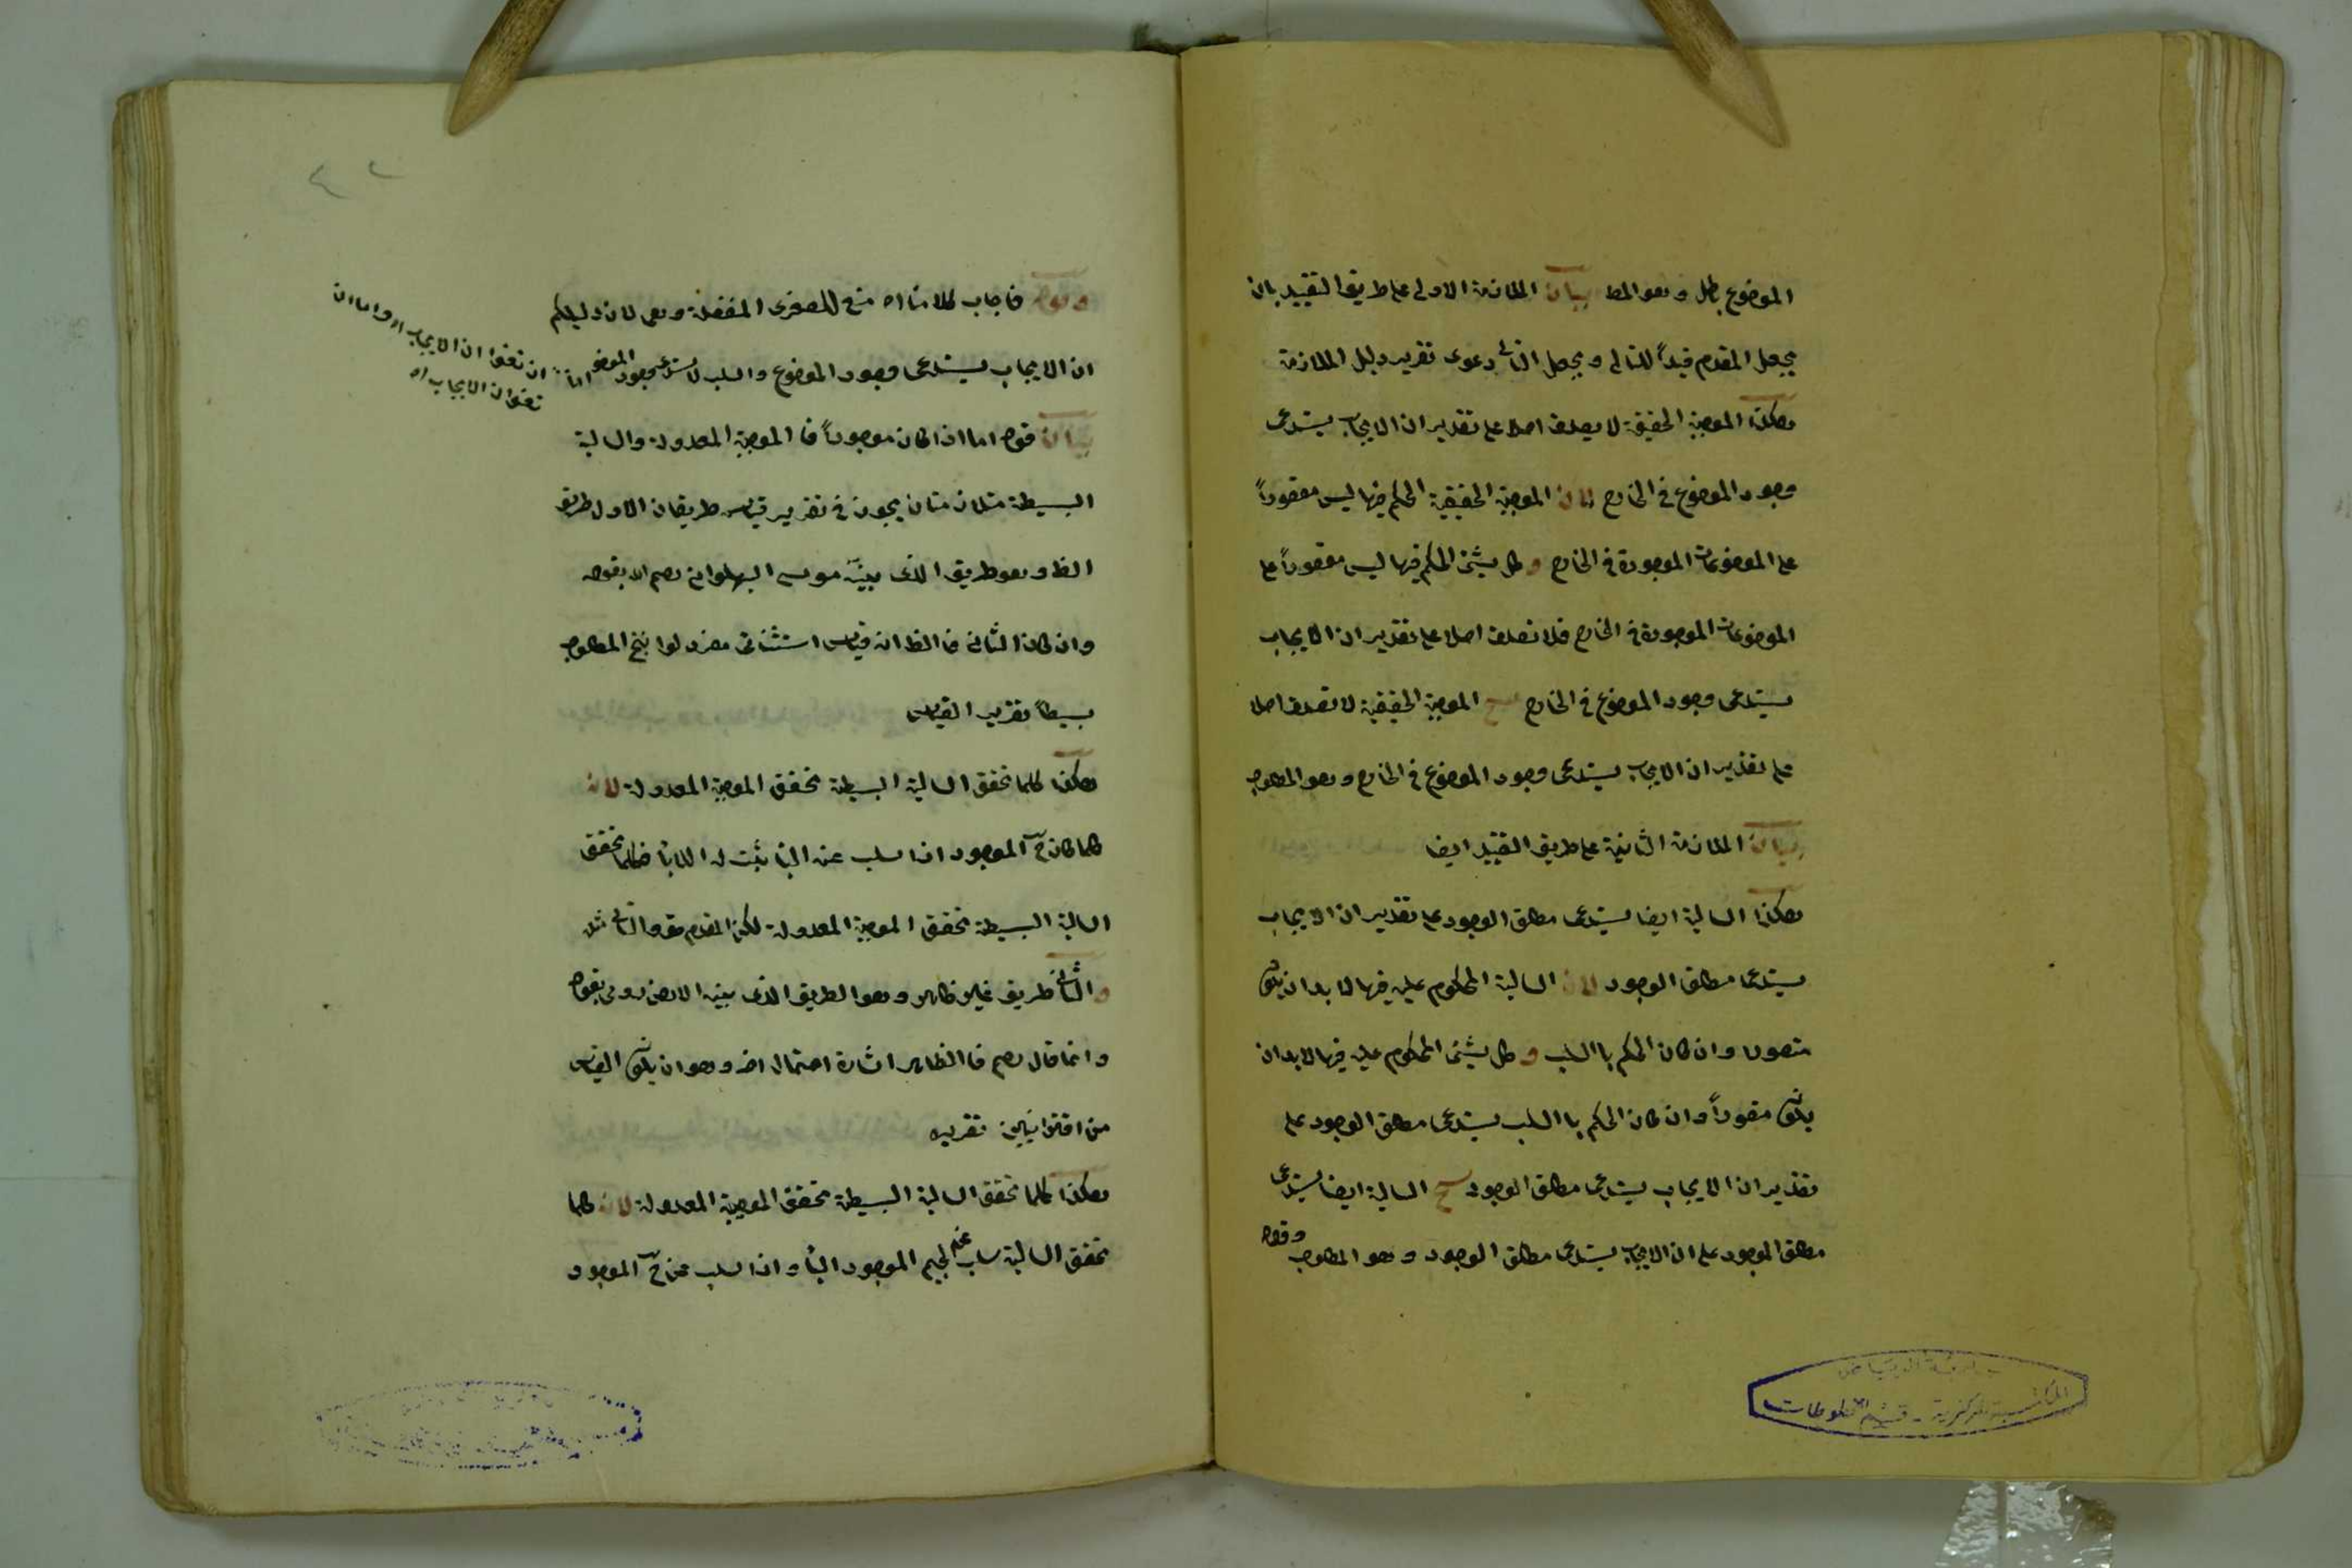 الموضوع باطل وهو المط بيان الملازمة الاولى على طريق التقييد بان
يجعل المقدم قيداً للتالى ويجعل التالى دعوى تقرير دليل الملازمة
هكذا الموجبة الحقيقية لا يصدق اصلا على تقدير ان الايجاب يستدعى
وجود الموضوع فى الخارج لان الموجبة الحقيقية الحكم فيها ليس مقصوراً
على الموضوعات الموجودة فى الخارج و كل يشئ الحكم فيها ليس مقصوراً على
الموضوعات الموجودة فى الخارج فلا تصدق اصلا على تقدير ان الايجاب
يستدعى وجود الموضوع فى الخارج ينتج الموجبة الحقيقية لا تصدق اصلا
على تقدير ان الايجاب يستدعى وجود الموضوع فى الخارج وهو المطلوب
بيان الملازمة الثانية على طريق التقييد ايضا
هكذا السالبة ايضا يستدعى مطلق الوجود على تقدير ان الايجاب
يستدعى مطلق الوجود لان السالبة المحكوم عليه فيها لا بد ان يكون
متصورا وان كان الحكم با السلب و كل يشئ المحكوم عليه فيها لا بد ان
يكون متصوراً وان كان الحكم با السلب يستدعى مطلق الوجود على
تقدير ان الايجاب يستدعى مطلق الوجود ينتج السالبة ايضا يستدعى
مطلق الوجود على ان الايجاب يستدعى مطلق الوجود وهو المطلوب وقوله
٤٢
وقوله فاجاب كلامنا اه منع للصغرى المنفصلة وهى لان دليلكم
ان الايجاب يستدعى وجود الموضوع والسلب لا يستدعى وجود الموضوع اما
ان تعنوا ان الايجاب اه واما ان
تعنوا ان الايجاب اه
بيان قوله اما اذا كان موجوداً فا الموجبة المعدولة والسالبة
البسيطة متلازمتان يجوز فى تقرير قياس طريقان الاول طريق
الظ وهو طريق الذى بينه موسى البهلوانى رحم الله بقوله
وان كان الثانى فا الظ انه قياس استثنائى مفرد لو انتج المطلوب
بسيطاً تقرير القياس
هكذا كلما تحقق السالبة البسيطة تحقق الموجبة المعدولة لان
كلما كان ج الموجود اذا سلب عنه البا يثبت له اللابا فكلما تحقق
السالبة البسيطة تحقق الموجبة المعدولة لكن المقدم حق والتالى مثله
و الثانى طريق غير ظاهر وهو الطريق الذى بينه الارضرومى بقوله
وانما قال رحم فا الظاهر اشارة احتمال اخر وهو ان يكون القياس
من اقترانيين تقريره
هكذا كلما تحقق السالبة البسيطة تحقق الموجبة المعدولة لان كلما
تحقق السالبة سلب عنه لجيم الموجود البا واذا سلب عن ج الموجود
المكتبة المركزية - قسم المخطوطات